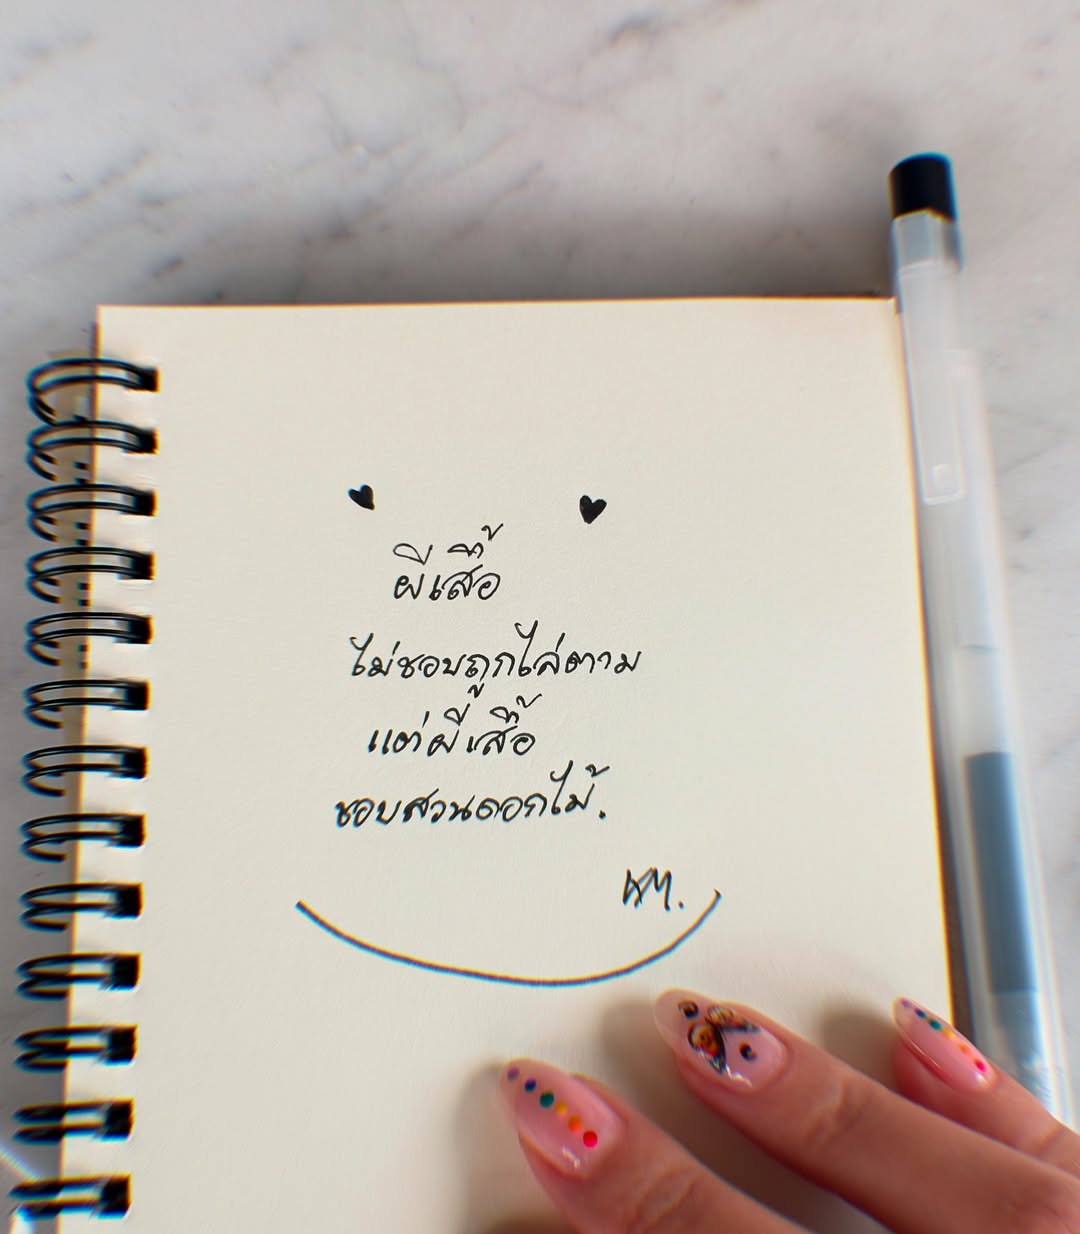 ผีเสื้อ
ไม่ชอบถูกไล่ตาม
แต่ผีเสื้อ
ชอบสวนดอกไม้.